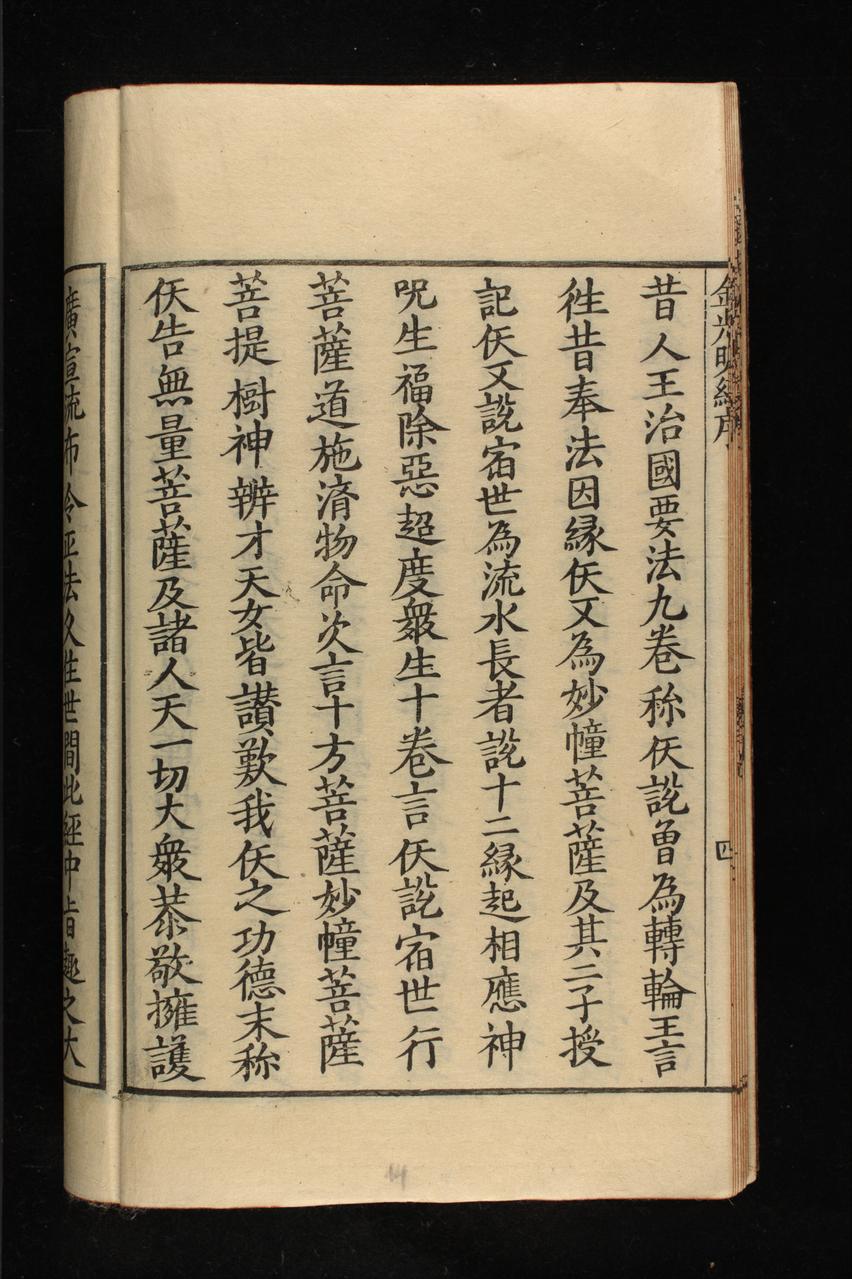 金光明經序
四
昔人王治國要法九卷称仸說曽為轉輪王言
徃昔奉法因緣仸又為妙幢菩薩及其二子授
記仸又說宿世為流水長者說十二緣起相應神
呪生福除惡超度衆生十卷言仸說宿世行
菩薩道施濟物命次言十方菩薩妙幢菩薩
菩提樹神辯才天女皆讃歎我仸之功德末称
仸告無量菩薩及諸人天一切大衆恭敬擁護
廣宣流布令正法久住世間此經中旨趣之大
14